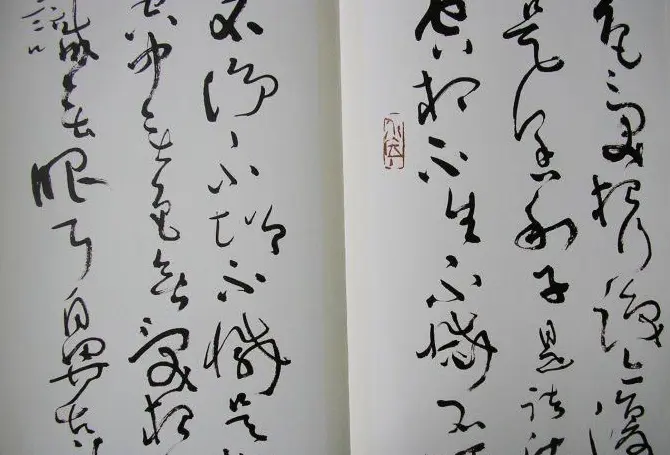 色受想行識亦復
是舍利子是諸法
空相不生不滅不
不淨不增不減是
空中無色無受想
識無眼耳鼻舌